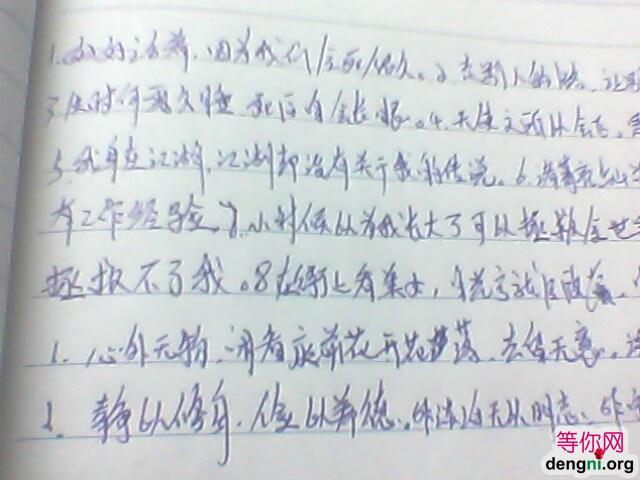 1.好好活着,因为我们会死很久。2.走别人的路,让
3.生时何必久睡,死后自会长眠。4.天生文所以会飞,
5.我身在江湖,江湖却没有关于我的传说。6.
有工作经验。7.小时候以为我长大了可以拯救全世
拯救不了我。8在街上看美女,
1.心外无物,闲看庭前花开花落,去留无意,
2.静以修身,俭以养德,非淡泊无以明志、非
等你网
dengni.org